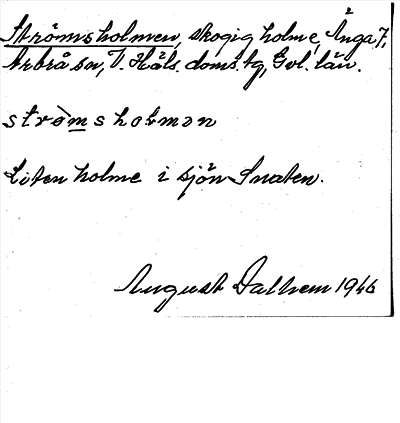 Strömsholmen, skogig holme, Änga 7,
Arbrå sn, V. Häls. doms. tg, Gvl. län.
strömsholmən
Liten holme i sjön Snaten.
August Dalhem 1946